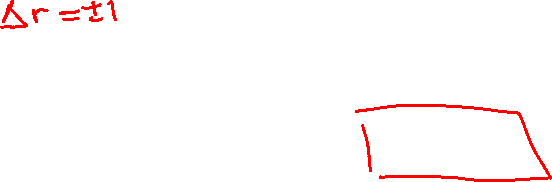 Δr=±1